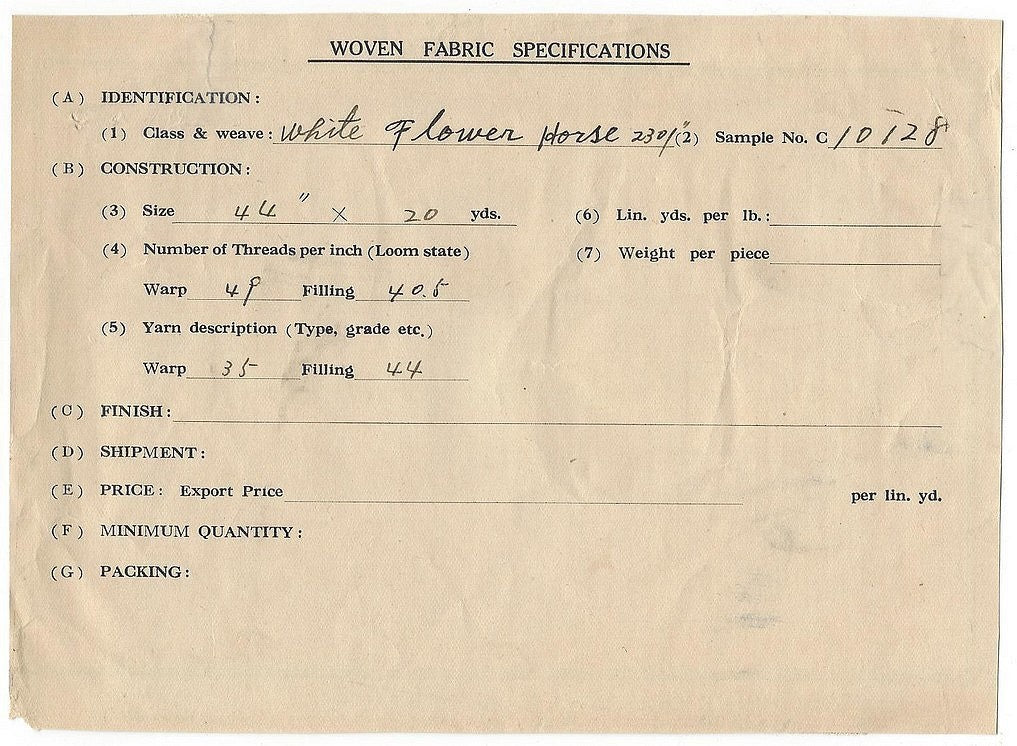 WOVEN FABRIC SPECIFICATIONS
(A) IDENTIFICATION:
(1) Class & weave: White Flower Horse 2301 (2) Sample No. C 10128
(B) CONSTRUCTION:
(3) Size 44" X 20 yds. (6) Lin. yds. per lb.:
(4) Number of Threads per inch (Loom state) (7) Weight per piece
Warp 49 Filling 40.5
(5) Yarn description (Type, grade etc.)
Warp 35 Filling 44
(C) FINISH:
(D) SHIPMENT:
(E) PRICE: Export Price per lin. yd.
(F) MINIMUM QUANTITY:
(G) PACKING: